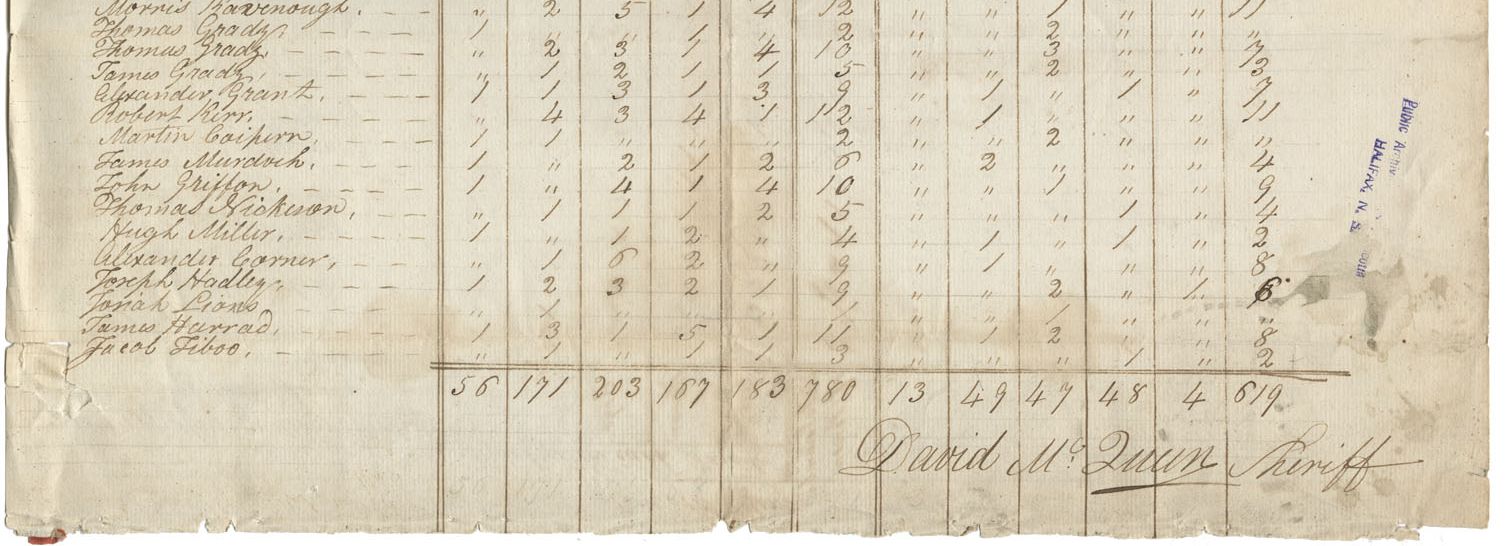 Morris Kavenough, 〃 2 5 1 4 12 〃 〃 1 〃 〃 11
Thomas Grady, 1 〃 〃 1 〃 2 〃 〃 2 〃 〃 〃
Thomas Grady, 〃 2 3 1 4 10 〃 〃 3 〃 〃 7
James Grady, 〃 1 2 1 1 5 〃 〃 2 〃 〃 3
Alexander Grant, 1 1 3 1 3 9 〃 1 〃 1 〃 7
Robert Kerr, 〃 4 3 4 1 12 〃 1 〃 〃 〃 11
Martin 1 1 〃 〃 〃 2 〃 〃 2 〃 〃 〃
James Murdoch, 1 〃 2 1 2 6 〃 2 〃 〃 〃 4
John Griffon, 1 〃 4 1 4 10 〃 〃 1 〃 〃 9
Thomas Nickeson, 〃 1 1 1 2 5 〃 〃 〃 1 〃 4
Hugh Miller, 1 〃 1 2 〃 4 〃 1 〃 1 〃 2
Alexander Corner, 〃 1 6 2 〃 9 〃 1 〃 〃 〃 8
Joseph Hadley, 1 2 3 2 1 9 〃 〃 2 〃 1 6
Jonah Lions 〃 1 〃 〃 〃 1 〃 〃 1 〃 〃 〃
James Harrad, 1 3 1 5 1 11 〃 1 2 〃 〃 8
Jacob Tiboo, 〃 1 〃 1 1 3 〃 〃 〃 1 〃 2
56 171 203 167 183 780 13 49 47 48 4 619
David Mc. Queen Sheriff
Public Archiv
HALIFAX, N. S.